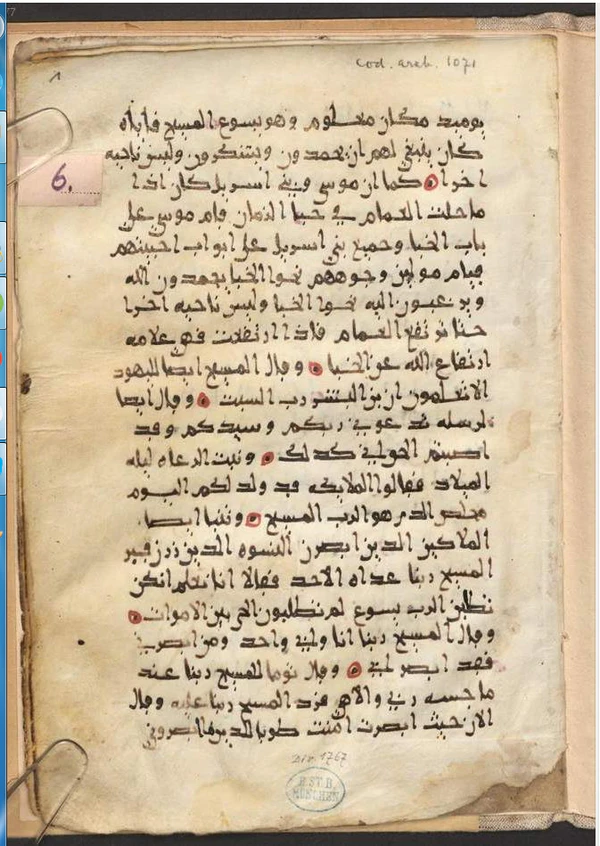 Cod. arab. 1071
1
6.
يوميد مكان معلوم وهو يسوع المسيح فاياه
كان ينبغي لهم ان يحمدون ويتشكرون وليس ناحيه
اخرا كما ان موسى وبني اسريل كان اذا
ما حلت الغمام في خبا الزمان قام موسى على
باب الخبا وجميع بني اسريل على ابواب اخبيتهم
قيام مولين وجوههم نحوا الخبا يحمدون الله
ويرغبون اليه نحوا الخبا وليس ناحيه اخرا
حتا ترتفع الغمام فاذا ارتفعت فهي علامه
ارتفاع الله عن الخبا وقال المسيح ايضا لليهود
الا تعلمون ان بن البشر رب السبت وقال ايضا
لرسله تدعوني ربكم وسيدكم وقد
اصبتم اني كدلك الرعاه ليله
الميلاد فقالوا الملايكه قد ولد لكم اليوم
مخلص الدي هو الرب المسيح ايضا
الملاكين الدين ابصرن النسوه الدين زرن قبر
المسيح ربنا غداه الاحد فقالا انا نعلم انكن
تطلبن الرب يسوع لم تطلبون الحي بين الاموات
وقال المسيح ربنا انا وابي واحد ومن ابصرني
فقد ابصر ابي وقال توما للمسيح ربنا عند
ما جسه ربي والاهي فرد المسيح ربنا عليه وقال
الان حيث ابصرت امنت طوبا للدين
1767
B. ST. B.
MÜNCHEN